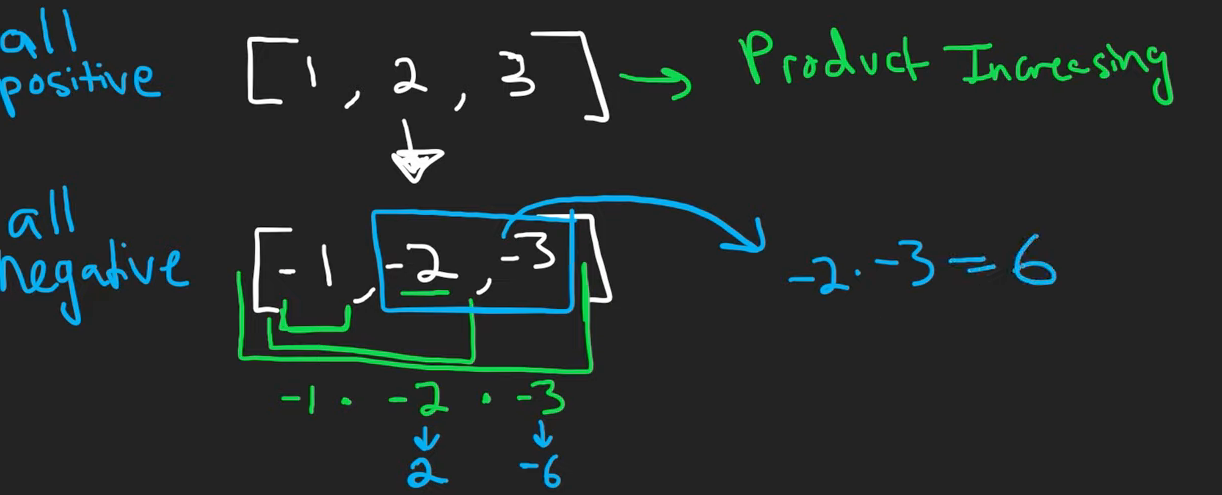 all
positive
[1, 2, 3] → Product Increasing
all
negative
[-1, -2, -3]
-2 · -3 = 6
-1 · -2 · -3
2
-6